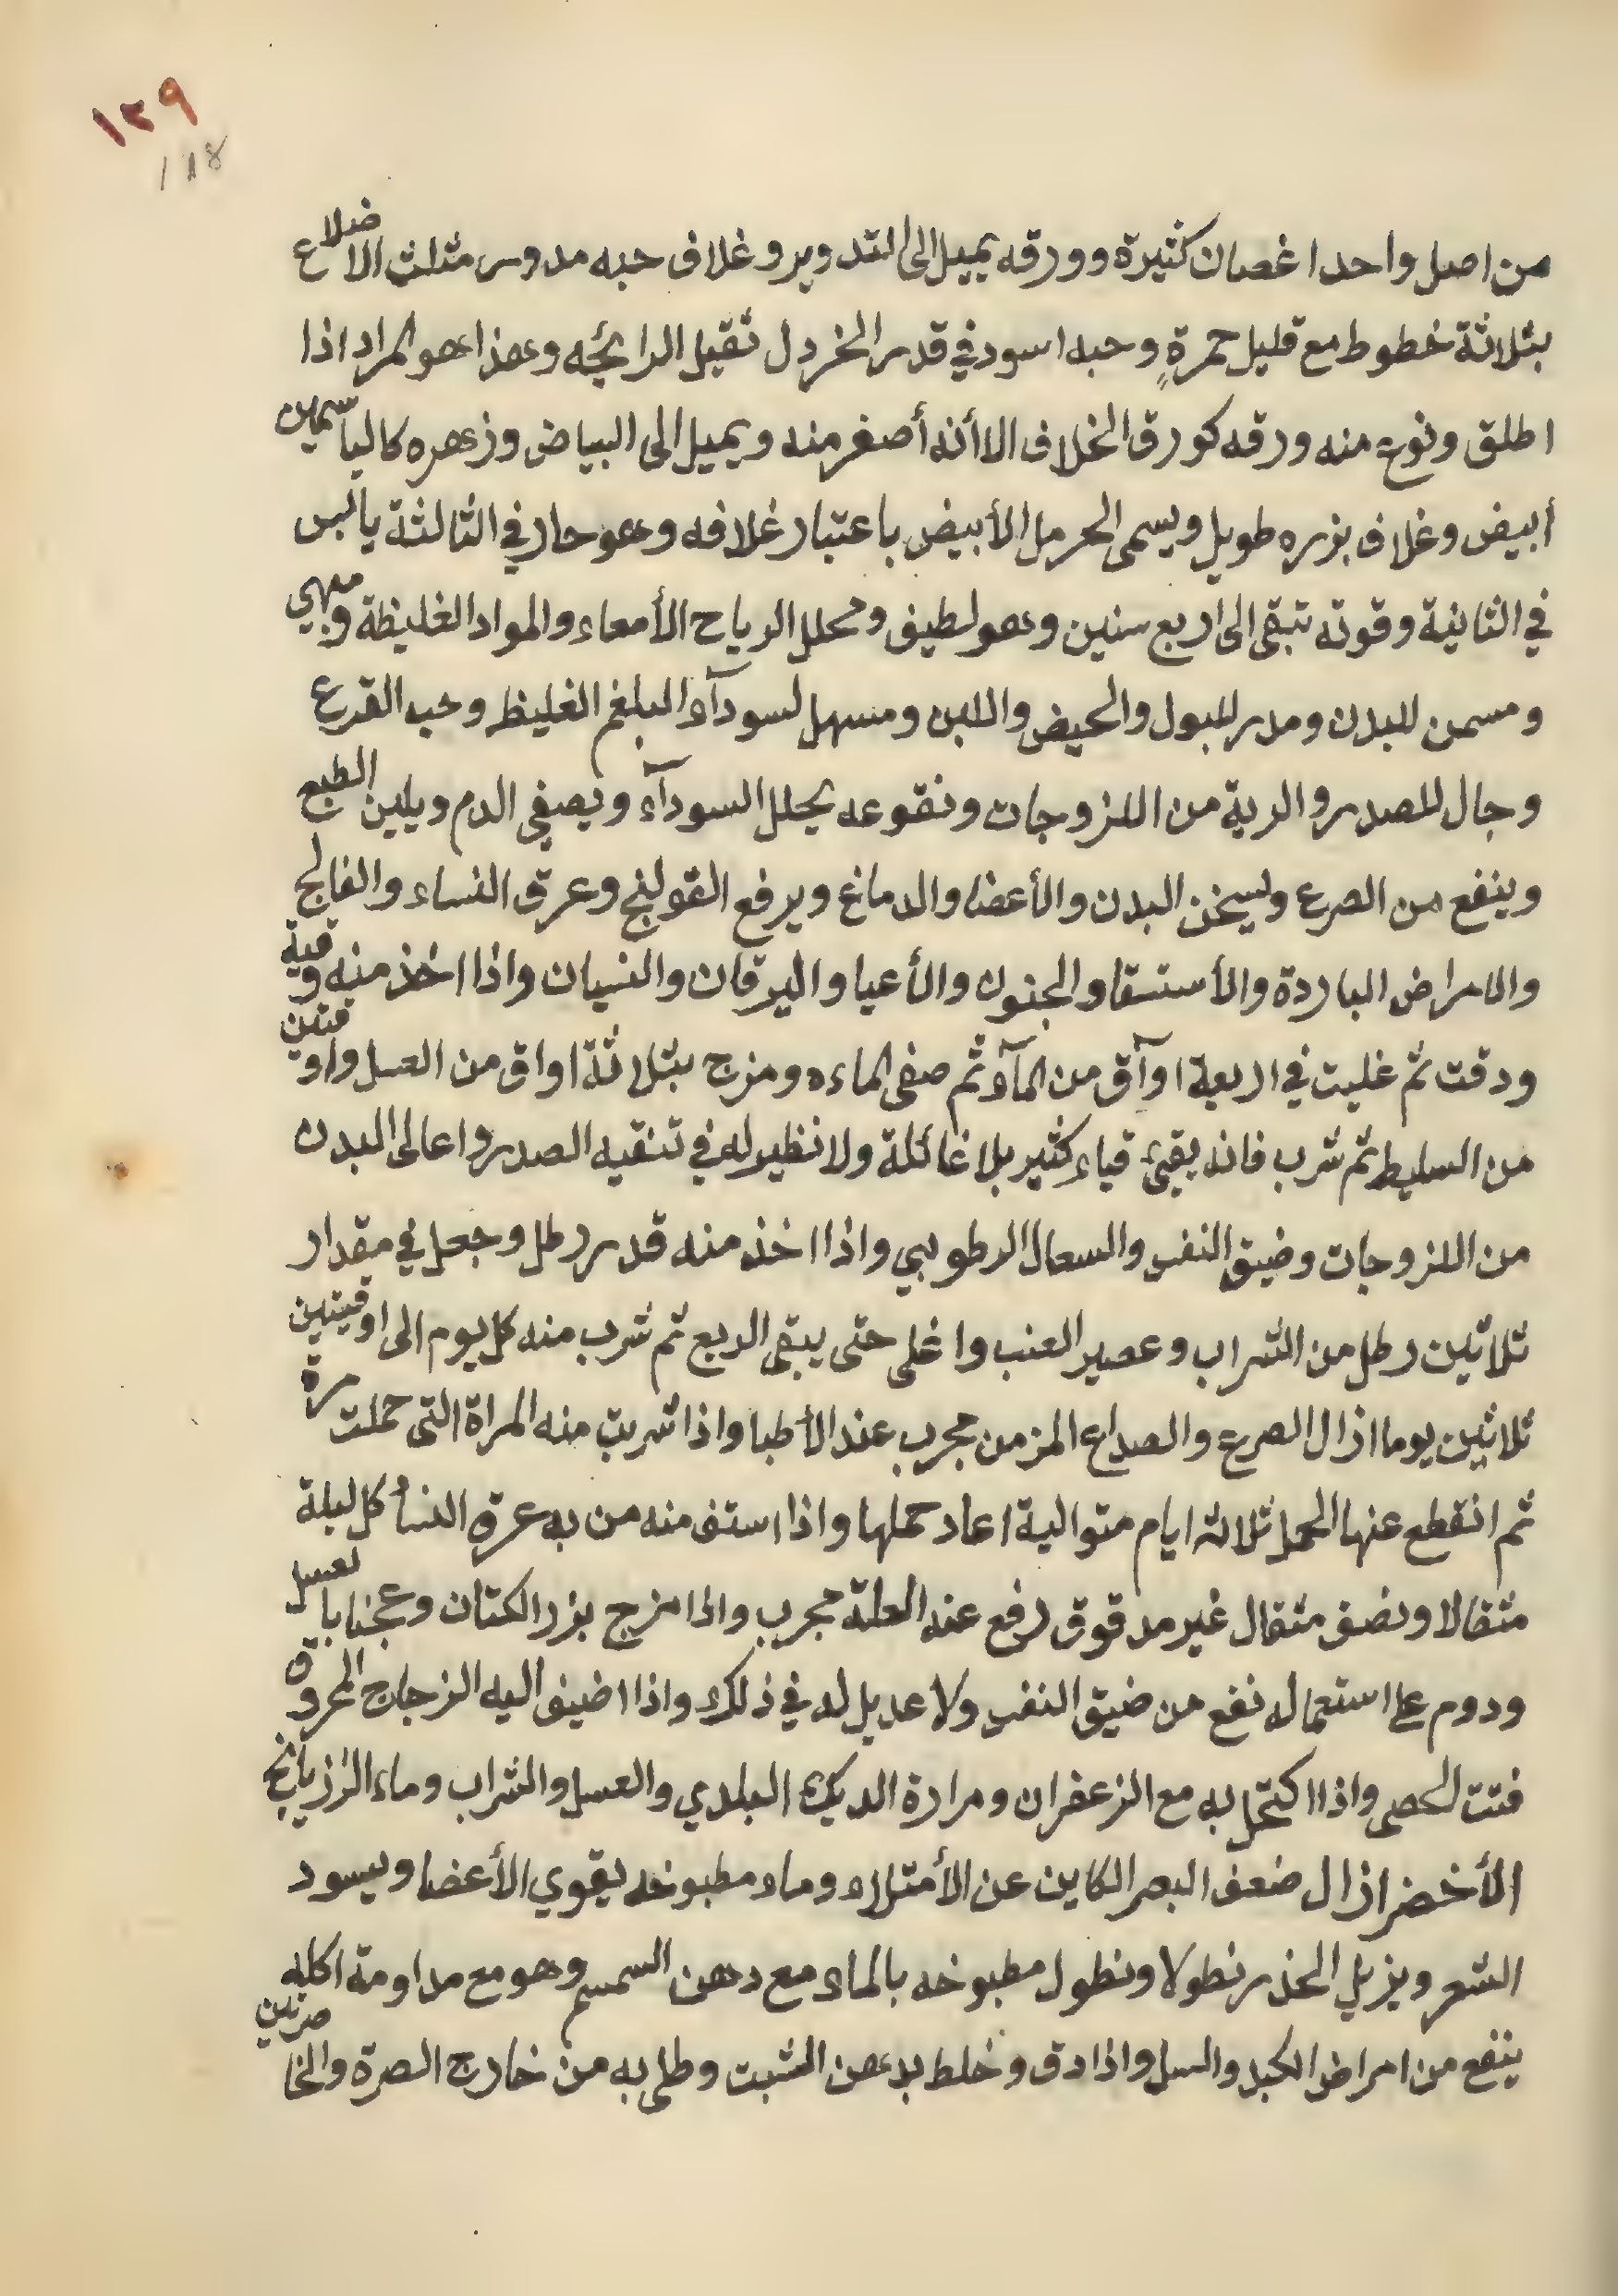 ١٢٩
118
من اصل واحد اغصان كثيرة وورقه يميل الى التدوير وغلاف حبه مدوس مثلث الاضلاع
بثلاثة خطوط مع قليل حمرةٍ وحبه اسود في قدر الخردل ثقيل الرائحه وهذا هو المراد اذا
اطلق ونوع منه ورقه كورق الخلاف الا أنه أصغر منه ويميل الى البياض وزهره كالياسمين
أبيض وغلاف بزره طويل ويسمى الحرمل الأبيض باعتبار غلافه وهو حار في الثالثة يابس
في الثانية وقوته تبقى الى اربع سنين وهو لطيف ومحلل الرياح الأمعاء والمواد الغليظة ومبهي
ومسمن للبدن ومدر للبول والحيض واللبن ومسهل لسودآء البلغم الغليظ وحب القرع
وجال للصدر والرية من اللزوجات ونقوعه يحلل السودآء ويصفي الدم ويلين الطبع
وينفع من الصرع ويسخن البدن والأعضا والدماغ ويرفع القولنج وعرق النساء والفالج
والامراض الباردة والأستسقا والجنون والأعيا واليرقان والنسيان واذا اخذ منه وقية
ودقت ثم غليت في اربعة اوآق من المآء ثم صفى الماءه ومزج بثلاثة اواق من العسل واوقتين
من السليط ثم شرب فانه يقيئ قياء كثير بلا غائلة ولا نظير له في تنقيه الصدر واعالى البدن
من اللزوجات وضيق النفس والسعال الرطوبي واذا اخذ منه قدر رطل وجعل في مقدار
ثلاثين رطل من الشراب وعصير العنب واغلى حتى يبقى الربع ثم شرب منه كل يوم الى اوقيتين
ثلاثين يوما ازال الصرع والصداع المزمن مجرب عند الأطبا واذا شربت منه المراة التى حملت مرة
ثم انقطع عنها الحمل ثلاثه ايام متوالية اعاد حملها واذا استف منه من به عرق النسأ كل ليلة
مثقالا ونصف مثقال غير مدقوق رفع عنه العلة مجرب واذا مزج بزر الكتان وعجنا بالعسل
ودوم على استعماله نفع من ضيق النفس ولا عديل له في ذلك واذا اضيف اليه الزجاج المحروق
فتت الحصى واذا اكتحل به مع الزعفران ومرارة الديك البلدي والعسل والشراب وماء الرازيانج
الأخضر ازال ضعف البصر الكاين عن الأمتلاء وماء مطبوخه يقوي الأعضا ويسود
الشعر ويزيل الخذر نطولا ونطول مطبوخه بالماء مع دهن السمسم وهو مع مداومة اكله
ينفع من امراض الكبد والسل واذا دق وخلط بدهن الشبت وطلى به من خارج الصرة والخاصرتين